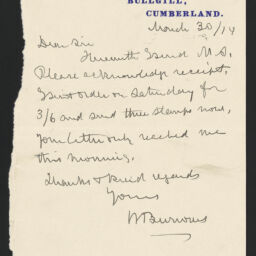 BULLGILL,
CUMBERLAND.
March 30/14
Dear Sir
Herewith I send M.S.
Please acknowledge receipt.
I sent order on Saturday for
3/6 and send three stamps now.
Your letter only reached me
this morning.
Thanks & kind regards
Yours
W Burrows